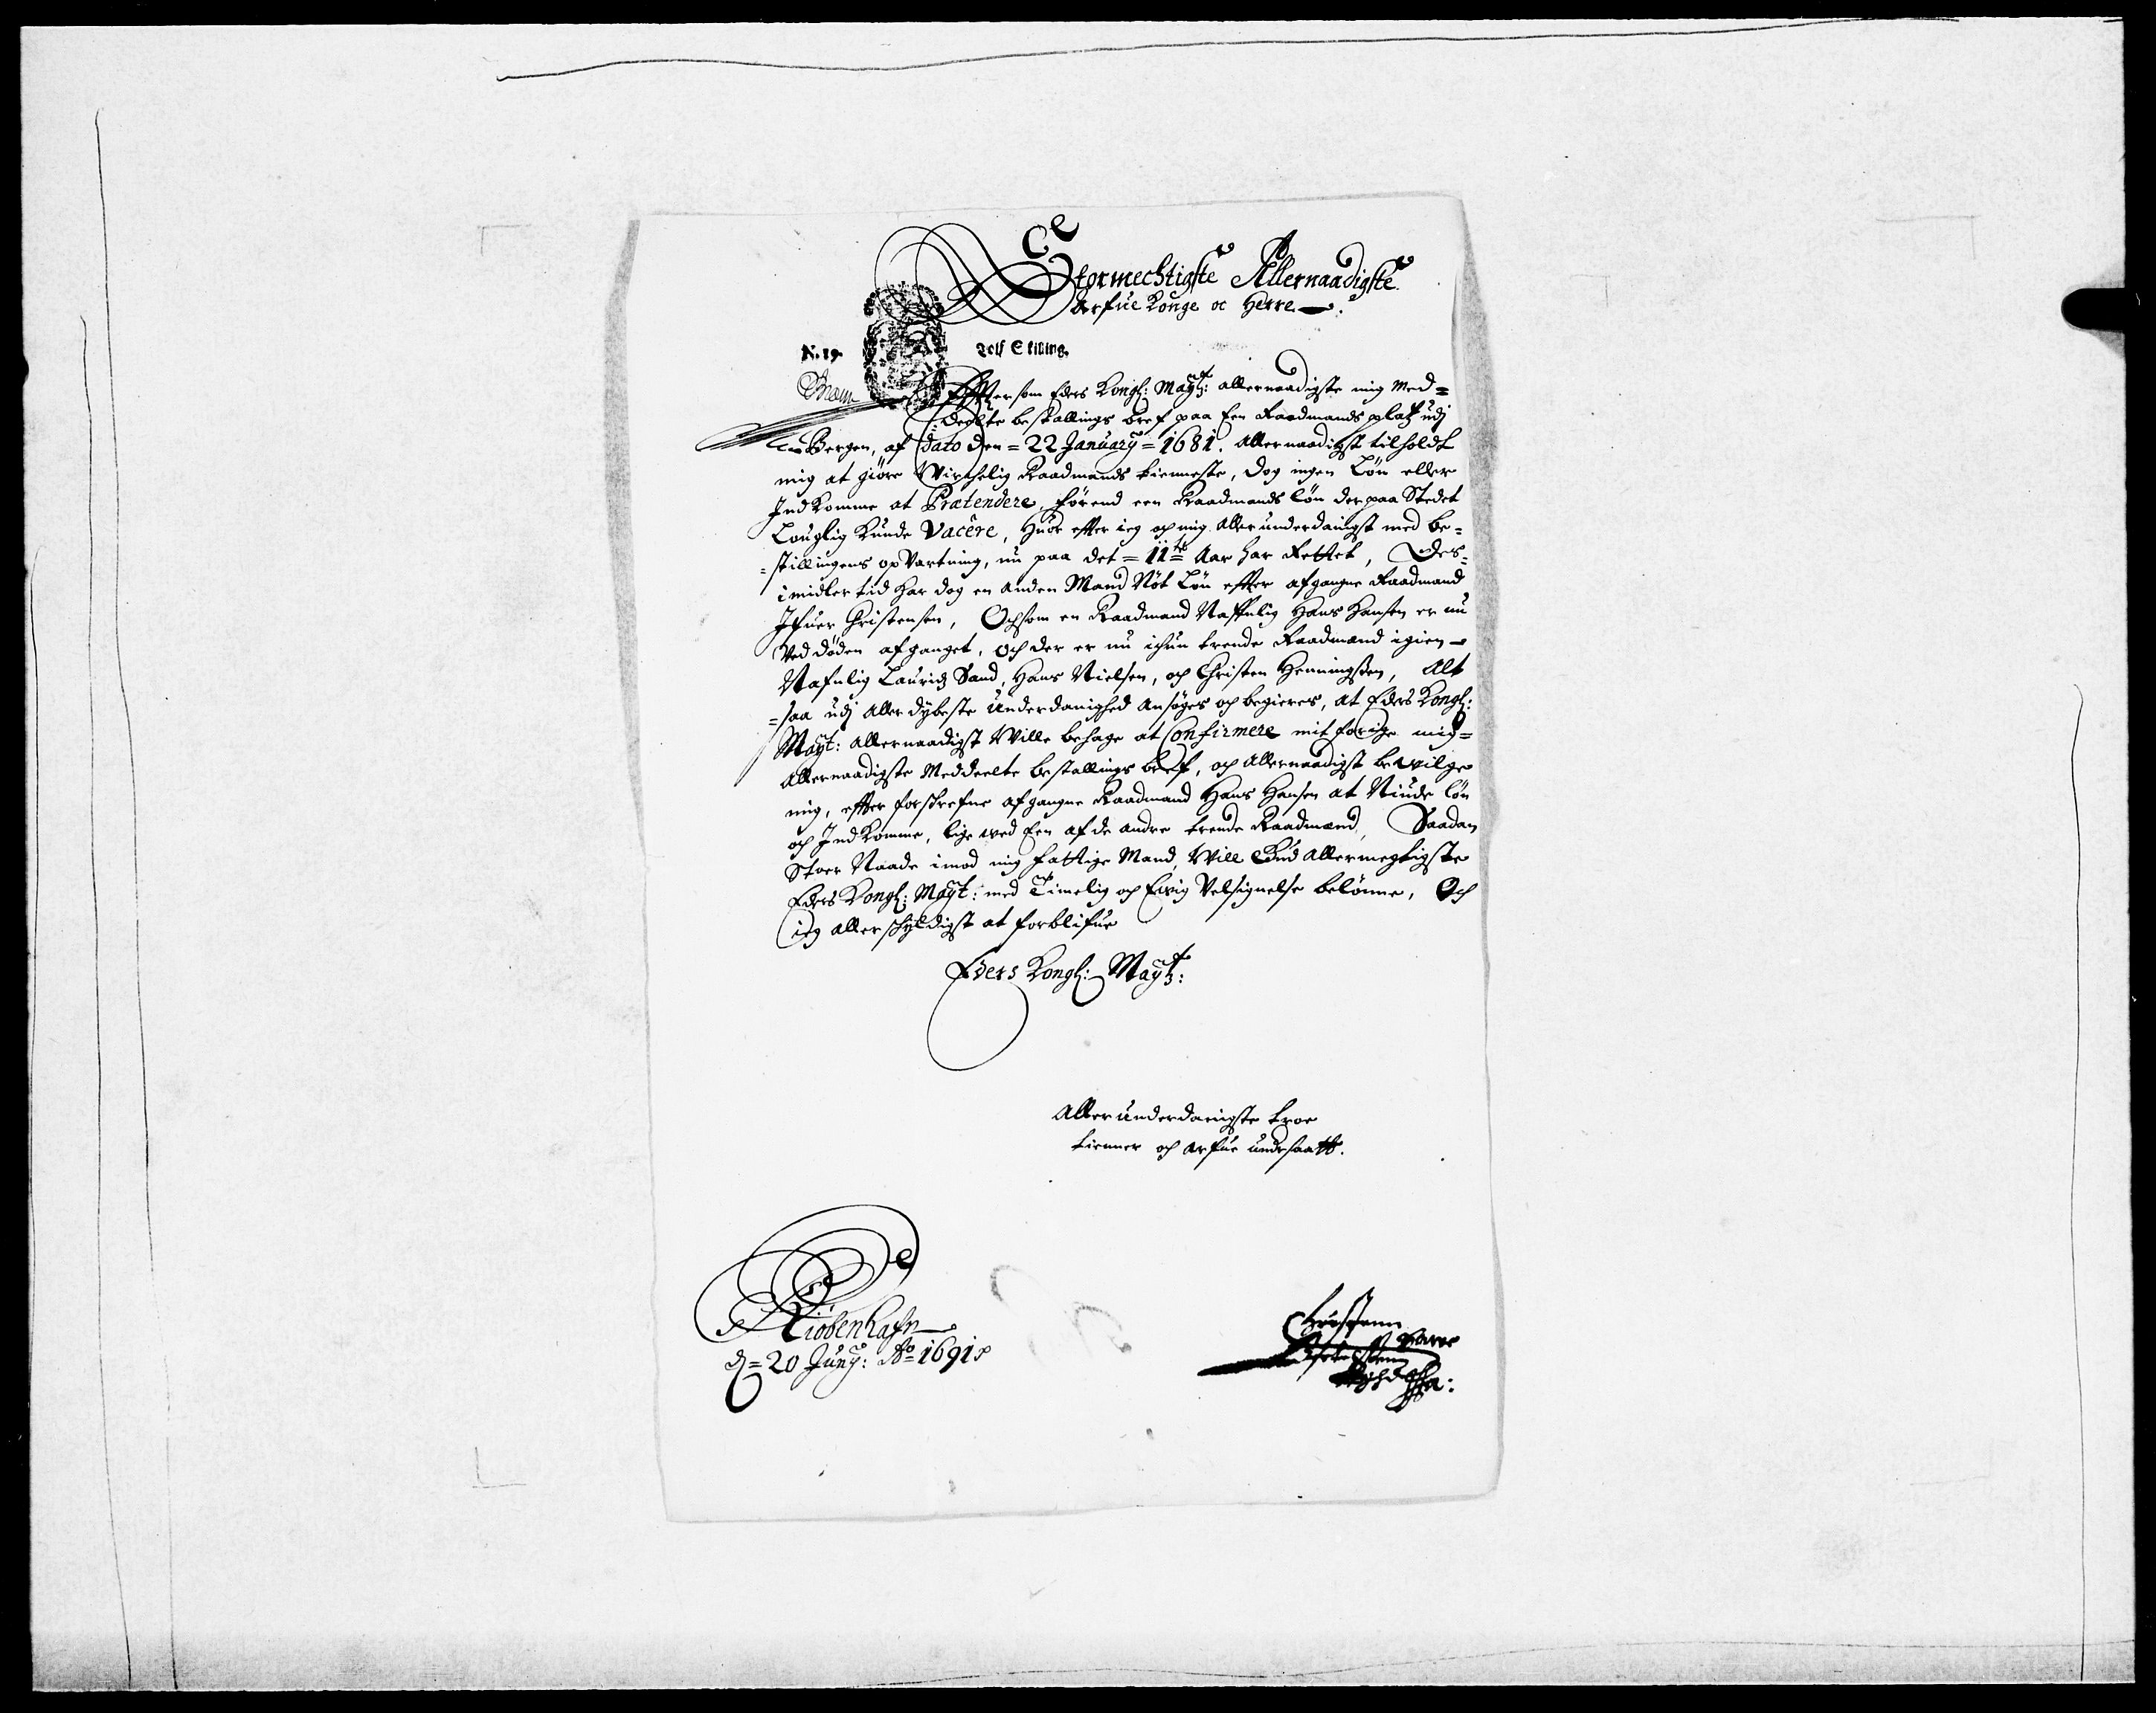 Stormechtigste Allernaadigste
Arfue Konge oc Herre
N. 19. Tolf Skilling.
Effttersom Eders Kongl: Mayt: allernaadigste mig med=
deelte bestallings bref paa Een Raadmands platz udj
Bergen, af Dato den = 22 January = 1681. Allernaadigst tilholdt
mig at giöre Wirchelig Raadmands tienneste, dog ingen Lön eller
Indkomme at Prætendere, förend een Raadmands lön der paa Stedet
Louglig kunde Vacêre, huor effter ieg och mig Allerunderdanigst med be=
=stillingens opVartning, nu paa det = 11te Aar har Rettet, Des=
imidlertid har dog en anden Mand Nöt Lön effter afgangne Raadmand
Ifuer Christensen, Och som en Raadmand Naffnlig Hans Hansen er nu
Ved döden afganget, och der er nu ichun trende Raadmænd igien
Nafnlig Lauridz Sand, Hans Nielsen, och Christen Henningsen, Alt
=saa udj Aller dybeste Underdanighed ansöges och begieres, at Eders Kongl:
Mayt: Allernaadigst Wille behage at Confirmere mit forige mig=
Allernaadigste Meddeelte bestallings bref, och Allernaadigst bewilge
mig, effter forschrefne afgangne Raadmand Hans Hansen at Niude lön
och Indkomme, lige wed Een af de andre trende Raadmænd, Saadan
Stoer Naade imod mig fattige Mand, Will Gud Allermegtigste
Eders Kongl: Mayt: med Timelig och Ewig Velsignelse belönne, Och
ieg allerschyldigst at forblifue
Eders Kongl: Mayt:
Allerunderdanigste troe
tienner och Arfue undersaatt.
Kiöbenhafn
d = 20 Juny: Ao 1691